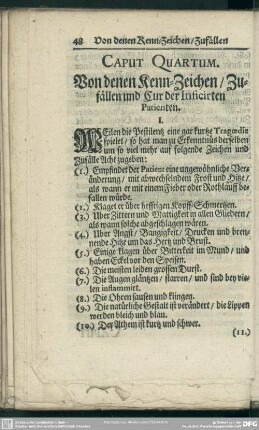 48 Von denen Kenn-Zeichen / Zufällen
CAPUT QUARTUM.
Von denen Kenn-Zeichen / Zu-
fällen und Cur der Inficirten
Patienten.
I.
WEilen die Pestilentz eine gar kurtze Tragœdie
spielet / so hat man zu Erkenntnüß derselben
um so viel mehr auf folgende Zeichen und
Zufälle Acht zugeben:
(1.) Empfindet der Patient eine ungewöhnliche Ver-
änderung / mit abwechselndem Frost und Hitze /
als wann er mit einem Fieber oder Rothlauff be-
fallen würde.
(2.) Klaget er über hefftigen Kopff-Schmertzen.
(3.) Uber Zittern und Mattigkeit in allen Gliedern /
als wann solche abgeschlagen wären.
(4.) Uber Angst / Bangigkeit / Drucken und bren-
nende Hitz um das Hertz und Brust.
(5.) Einige klagen über Bitterkeit im Mund / und
haben Eckel vor den Speisen.
(6.) Die meisten leiden grossen Durst.
(7.) Die Augen gläntzen / starren / und sind bey vie-
len inflammirt.
(8.) Die Ohren sausen und klingen.
(9.) Die natürliche Gestalt ist verändert / die Lippen
werden bleich und blau.
(10.) Der Athem ist kurtz und schwer.
(11.)
DFG